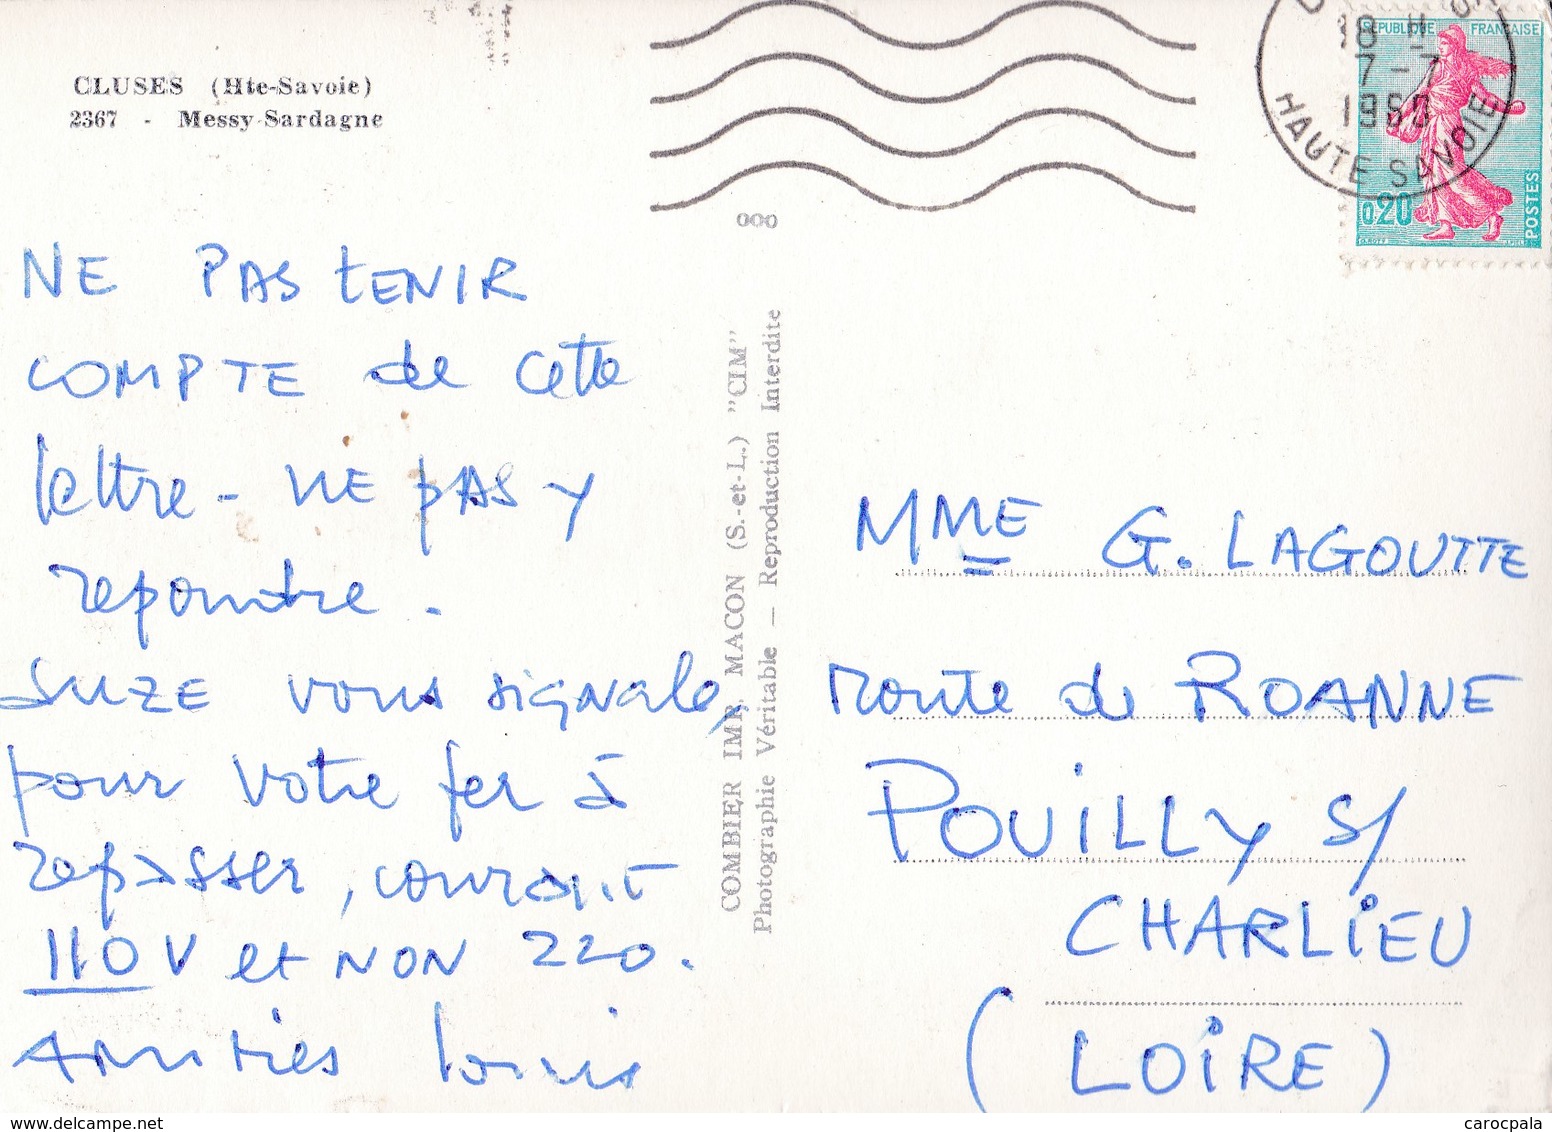 CLUSES (Hte-Savoie)
2367 - Messy-Sardagne
NE PAS tENIR
COMPTE de cette
lettre - NE PAS y
repondre.
SUZE vous signale,
pour votre fer à
repasser, courant
110 V et NON 220.
AMitiés Louis
000
COMBIER IMP. MACON (S.-et-L.) "CIM"
Photographie Véritable — Reproduction Interdite
18 H
7 - 7
1960
HAUTE SAVOIE
REPUBLIQUE FRANÇAISE
0,20
POSTES
MME G. LAGOUTTE
route de ROANNE
POUILLY s/
CHARLIEU
(LOIRE)
www.delcampe.net
carocpala